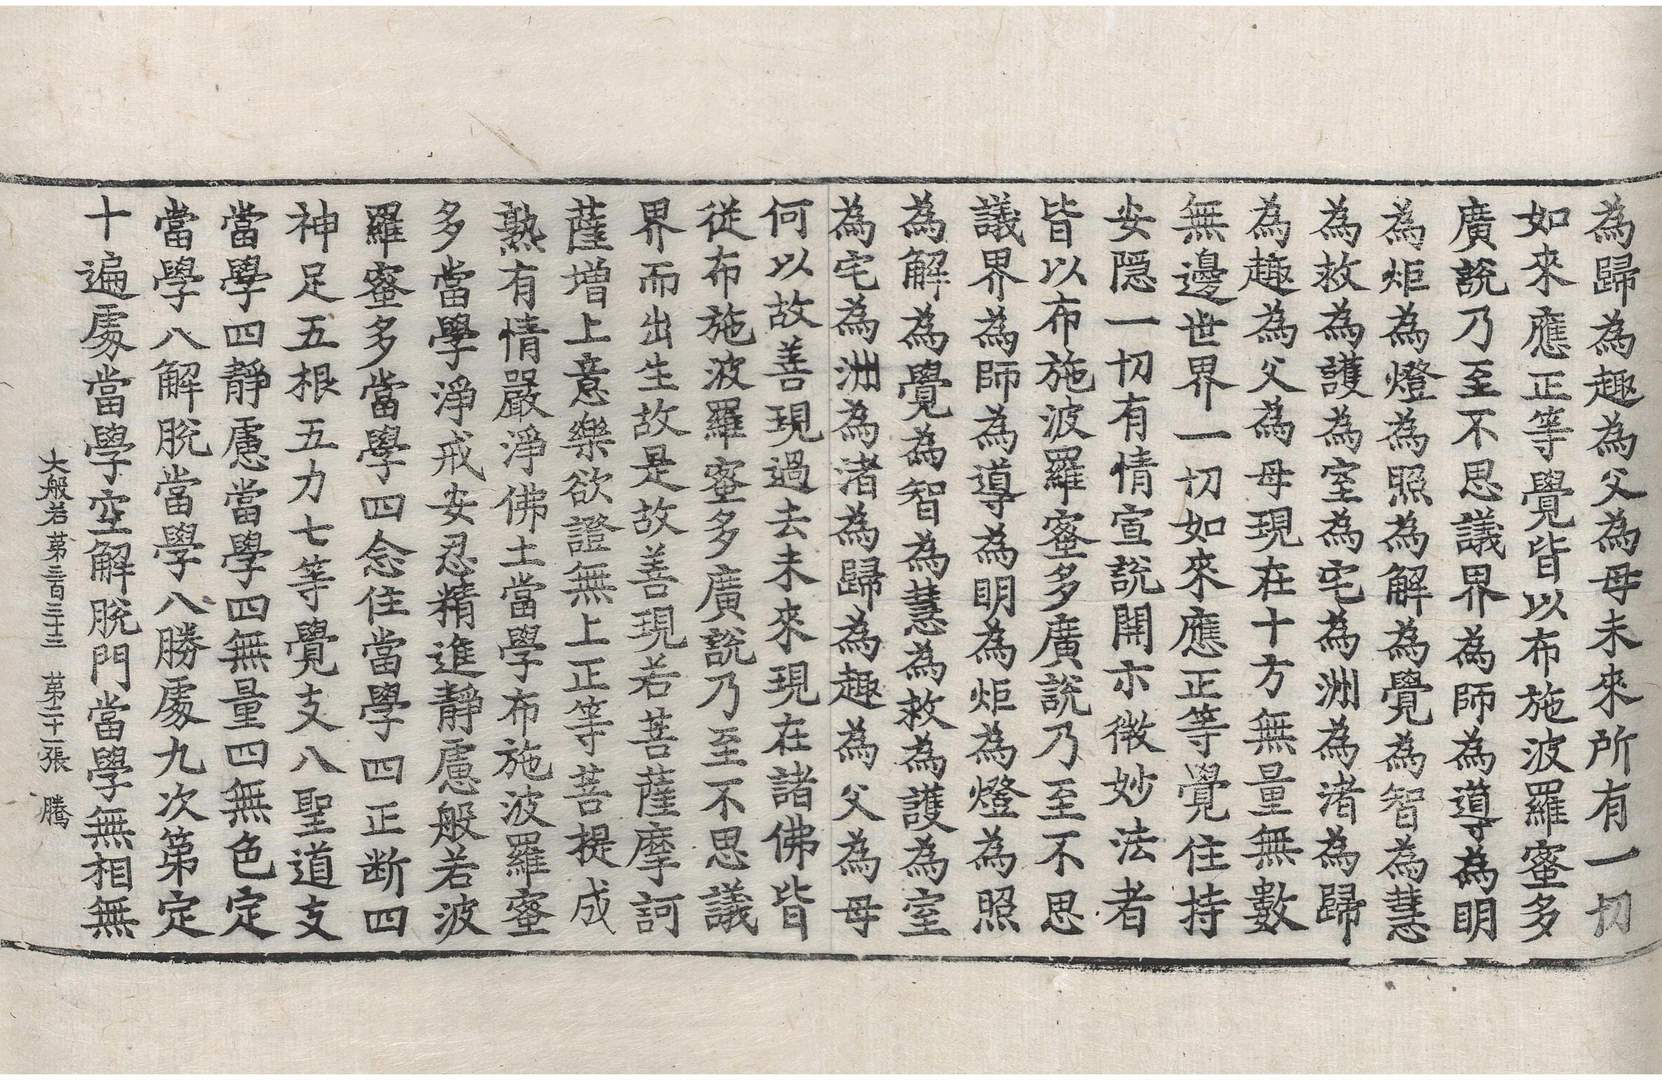 為歸為趣為父為母未來所有一切
如來應正等覺皆以布施波羅蜜多
廣說乃至不思議界為師為導為明
為炬為燈為照為解為覺為智為慧
為救為護為室為宅為洲為渚為歸
為趣為父為母現在十方無量無數
無邊世界一切如來應正等覺住持
安隱一切有情宣說開示微妙法者
皆以布施波羅蜜多廣說乃至不思
議界為師為導為明為炬為燈為照
為解為覺為智為慧為救為護為室
為宅為洲為渚為歸為趣為父為母
何以故善現過去未來現在諸佛皆
從布施波羅蜜多廣說乃至不思議
界而出生故是故善現若菩薩摩訶
薩增上意樂欲證無上正等菩提成
熟有情嚴淨佛土當學布施波羅蜜
多當學淨戒安忍精進靜慮般若波
羅蜜多當學四念住當學四正斷四
神足五根五力七等覺支八聖道支
當學四靜慮當學四無量四無色定
當學八解脫當學八勝處九次第定
十遍處當學空解脫門當學無相無
大般若第三百三十三 第二十一張 騰